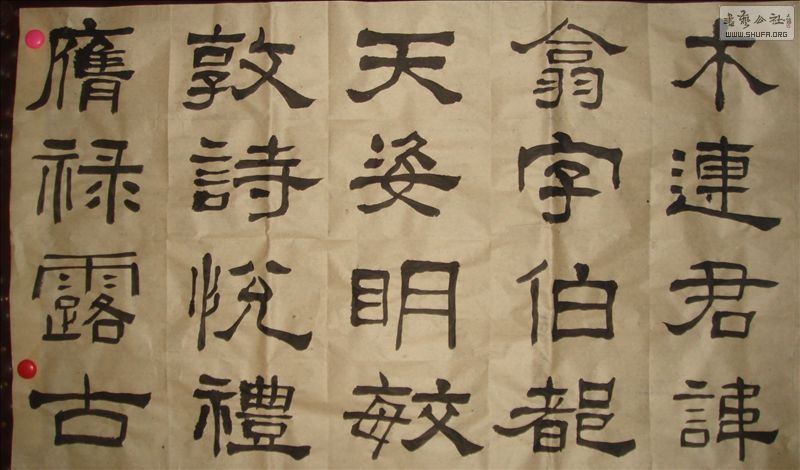 木連君諱
翕字伯都
天姿明敏
敦詩悅禮
膺禄露古
書藝公社
WWW.SHUFA.ORG